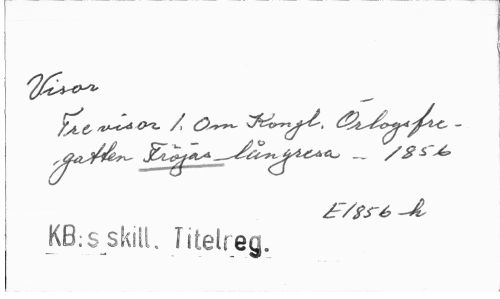 Visor
Tre visor 1. Om Kongl. Örlogsfre-
gatten Fröjas långresa - 1856
E1856 h
KB:s skill. Titelreg.